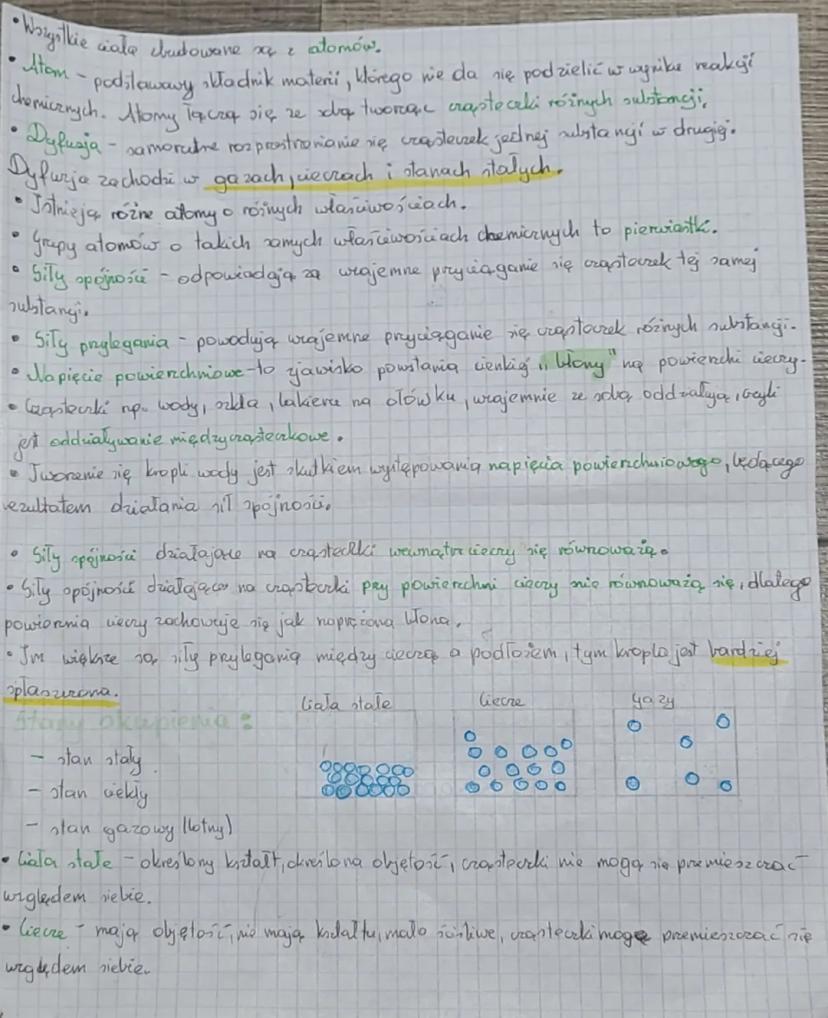 • Wszystkie ciała zbudowane są z atomów.
• Atom - podstawowy składnik materii, którego nie da się podzielić w wyniku reakcji
chemicznych. Atomy łączą się ze sobą tworząc cząsteczki różnych substancji.
• Dyfuzja - samorzutne rozprzestrzenianie się cząsteczek jednej substancji w drugiej.
Dyfuzja zachodzi w gazach, cieczach i stanach stałych.
• Istnieją różne atomy o różnych właściwościach.
• Grupy atomów o takich samych właściwościach chemicznych to pierwiastki.
• Siły spójności - odpowiadają za wzajemne przyciąganie się cząsteczek tej samej
substancji.
• Siły przylegania - powodują wzajemne przyciąganie się cząsteczek różnych substancji.
• Napięcie powierzchniowe - to zjawisko powstania cienkiej "błony" na powierzchni cieczy.
• Cząsteczki np. wody, szkła, lakieru na ołówku, wzajemnie ze sobą oddziałują, czyli
jest oddziaływanie międzycząsteczkowe.
• Tworzenie się kropli wody jest skutkiem występowania napięcia powierzchniowego, będącego
rezultatem działania sił spójności.
• Siły spójności działające na cząsteczki wewnątrz cieczy się równoważą.
• Siły spójności działające na cząsteczki przy powierzchni cieczy nie równoważą się, dlatego
powierznia cieczy zachowuje się jak naprężona błona.
• Im większe są siły przylegania między cieczą a podłożem, tym kropla jest bardziej
spłaszczona.
Ciała stałe Ciecze Gazy
Stany skupienia:
- stan stały
- stan ciekły
- stan gazowy (lotny)
• Ciała stałe - określony kształt, określona objętość, cząsteczki nie mogą się przemieszczać
względem siebie.
• Ciecze - mają objętość, nie mają kształtu, mało ściśliwe, cząsteczki mogą przemieszczać się
względem siebie.